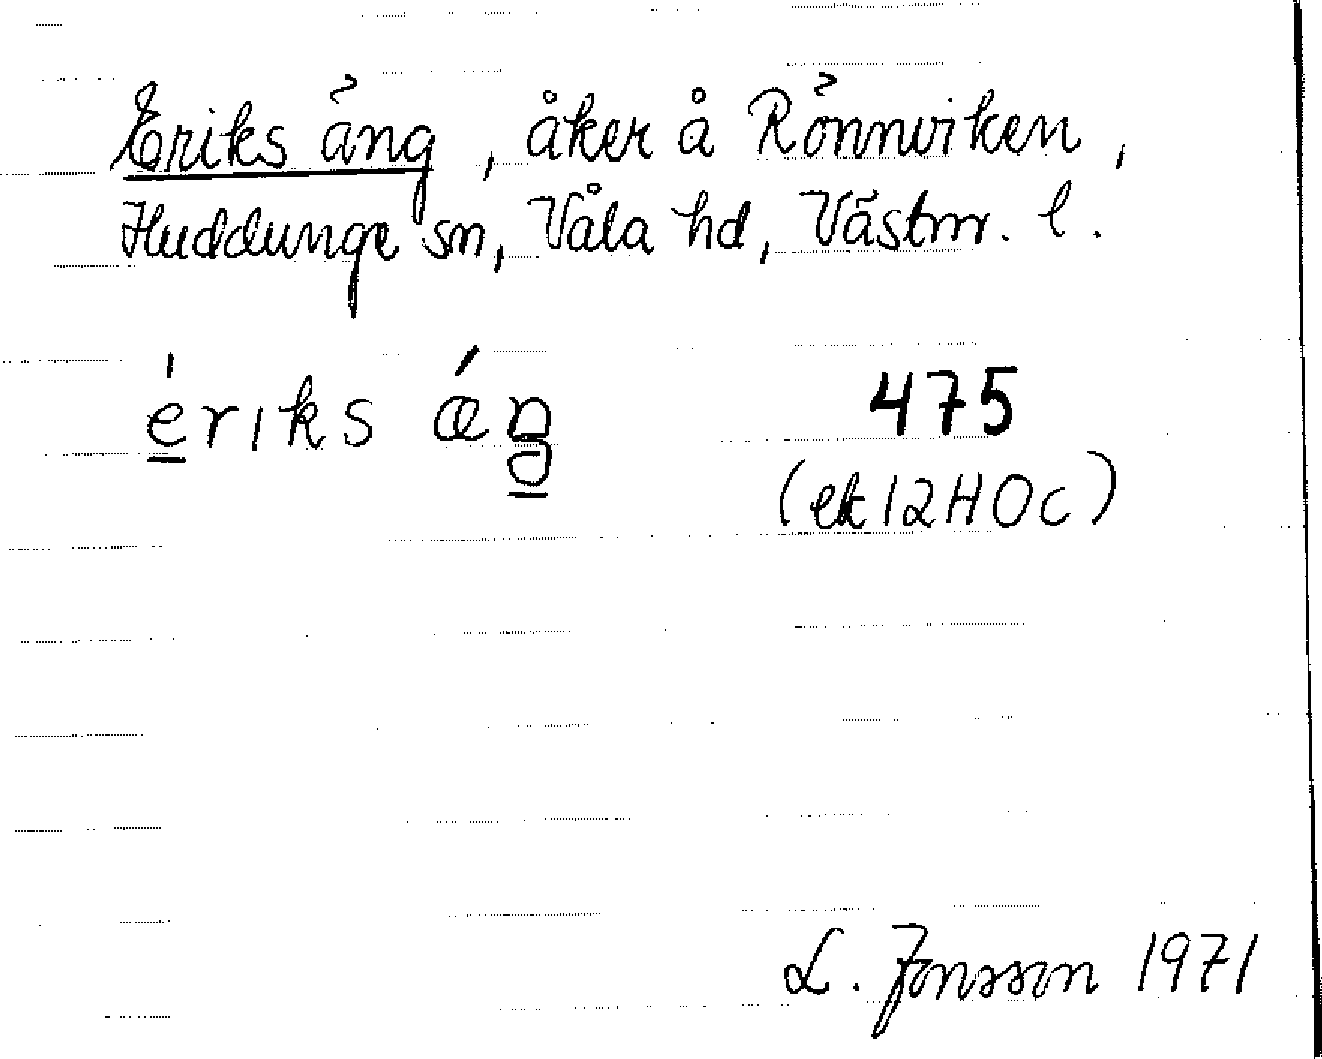 Eriks äng, åker å Rönnviken,
Huddunge sn, Våla hd, Västm. l.
ériks ǽŋ
475
(ek 12H0c)
L. Jonsson 1971